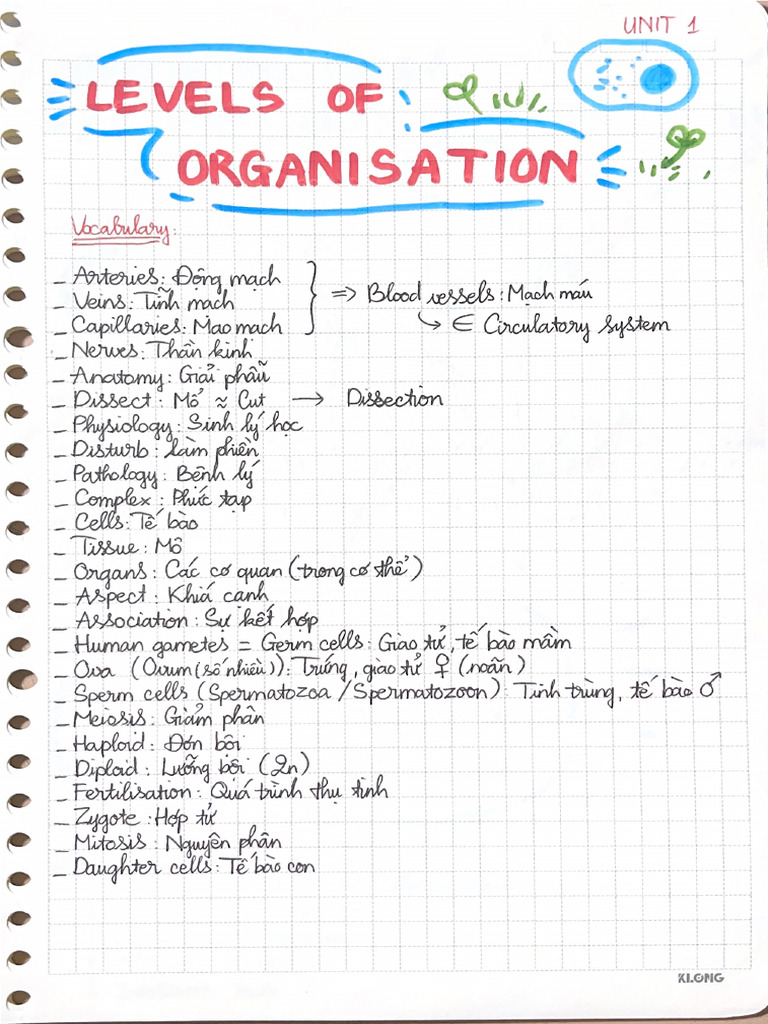 UNIT 1
LEVELS OF
ORGANISATION
Vocabulary:
_ Arteries: Động mạch
_ Veins: Tĩnh mạch
_ Capillaries: Mao mạch
} => Blood vessels: Mạch máu
↳ ∈ Circulatory system
_ Nerves: Thần kinh
_ Anatomy: Giải phẫu
_ Dissect: Mổ ≈ Cut → Dissection
_ Physiology: Sinh lý học
_ Disturb: Làm phiền
_ Pathology: Bệnh lý
_ Complex: Phức tạp
_ Cells: Tế bào
_ Tissue: Mô
_ Organs: Các cơ quan (trong cơ thể)
_ Aspect: Khía cạnh
_ Association: Sự kết hợp
_ Human gametes = Germ cells: Giao tử, tế bào mầm
_ Ova (Ovum (số nhiều)): Trứng, giao tử ♀ (noãn)
_ Sperm cells (Spermatozoa / Spermatozoon): Tinh trùng, tế bào ♂
_ Meiosis: Giảm phân
_ Haploid: Đơn bội
_ Diploid: Lưỡng bội (2n)
_ Fertilisation: Quá trình thụ tinh
_ Zygote: Hợp tử
_ Mitosis: Nguyên phân
_ Daughter cells: Tế bào con
KLONG